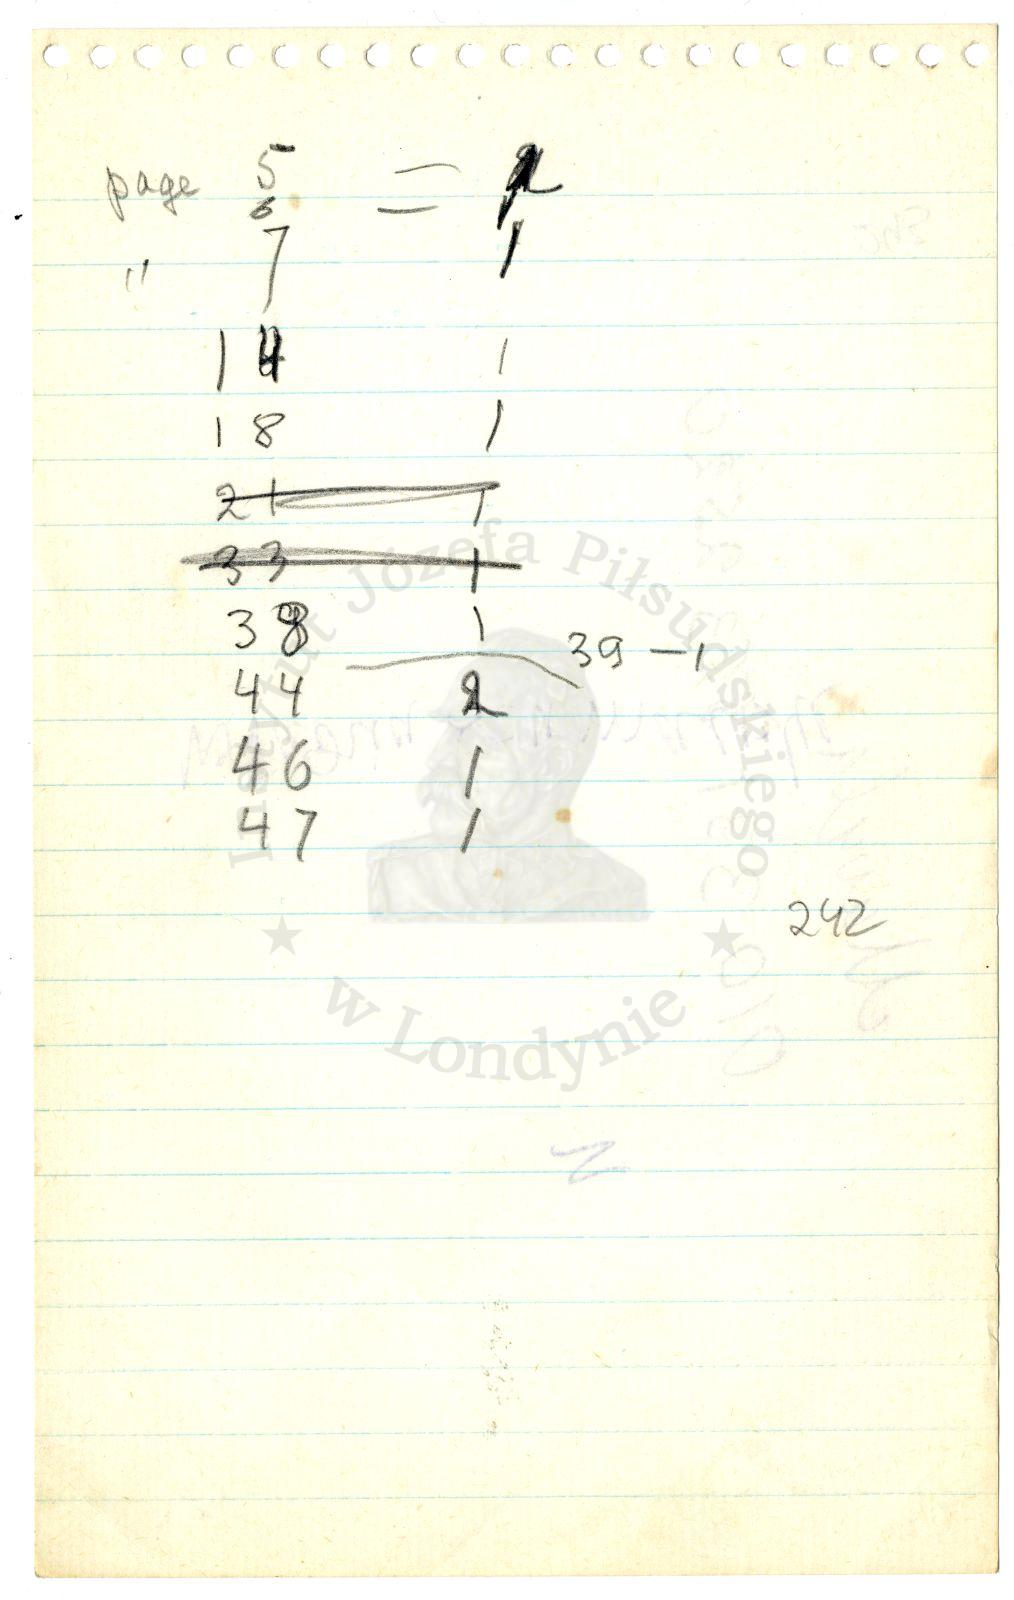 page 5 = 2
6 =
" 7 1
14 1
18 1
21 1
33 1
38 1
39 - 1
44 2
46 1
47 1
242
Instytut Józefa Piłsudskiego
w Londynie